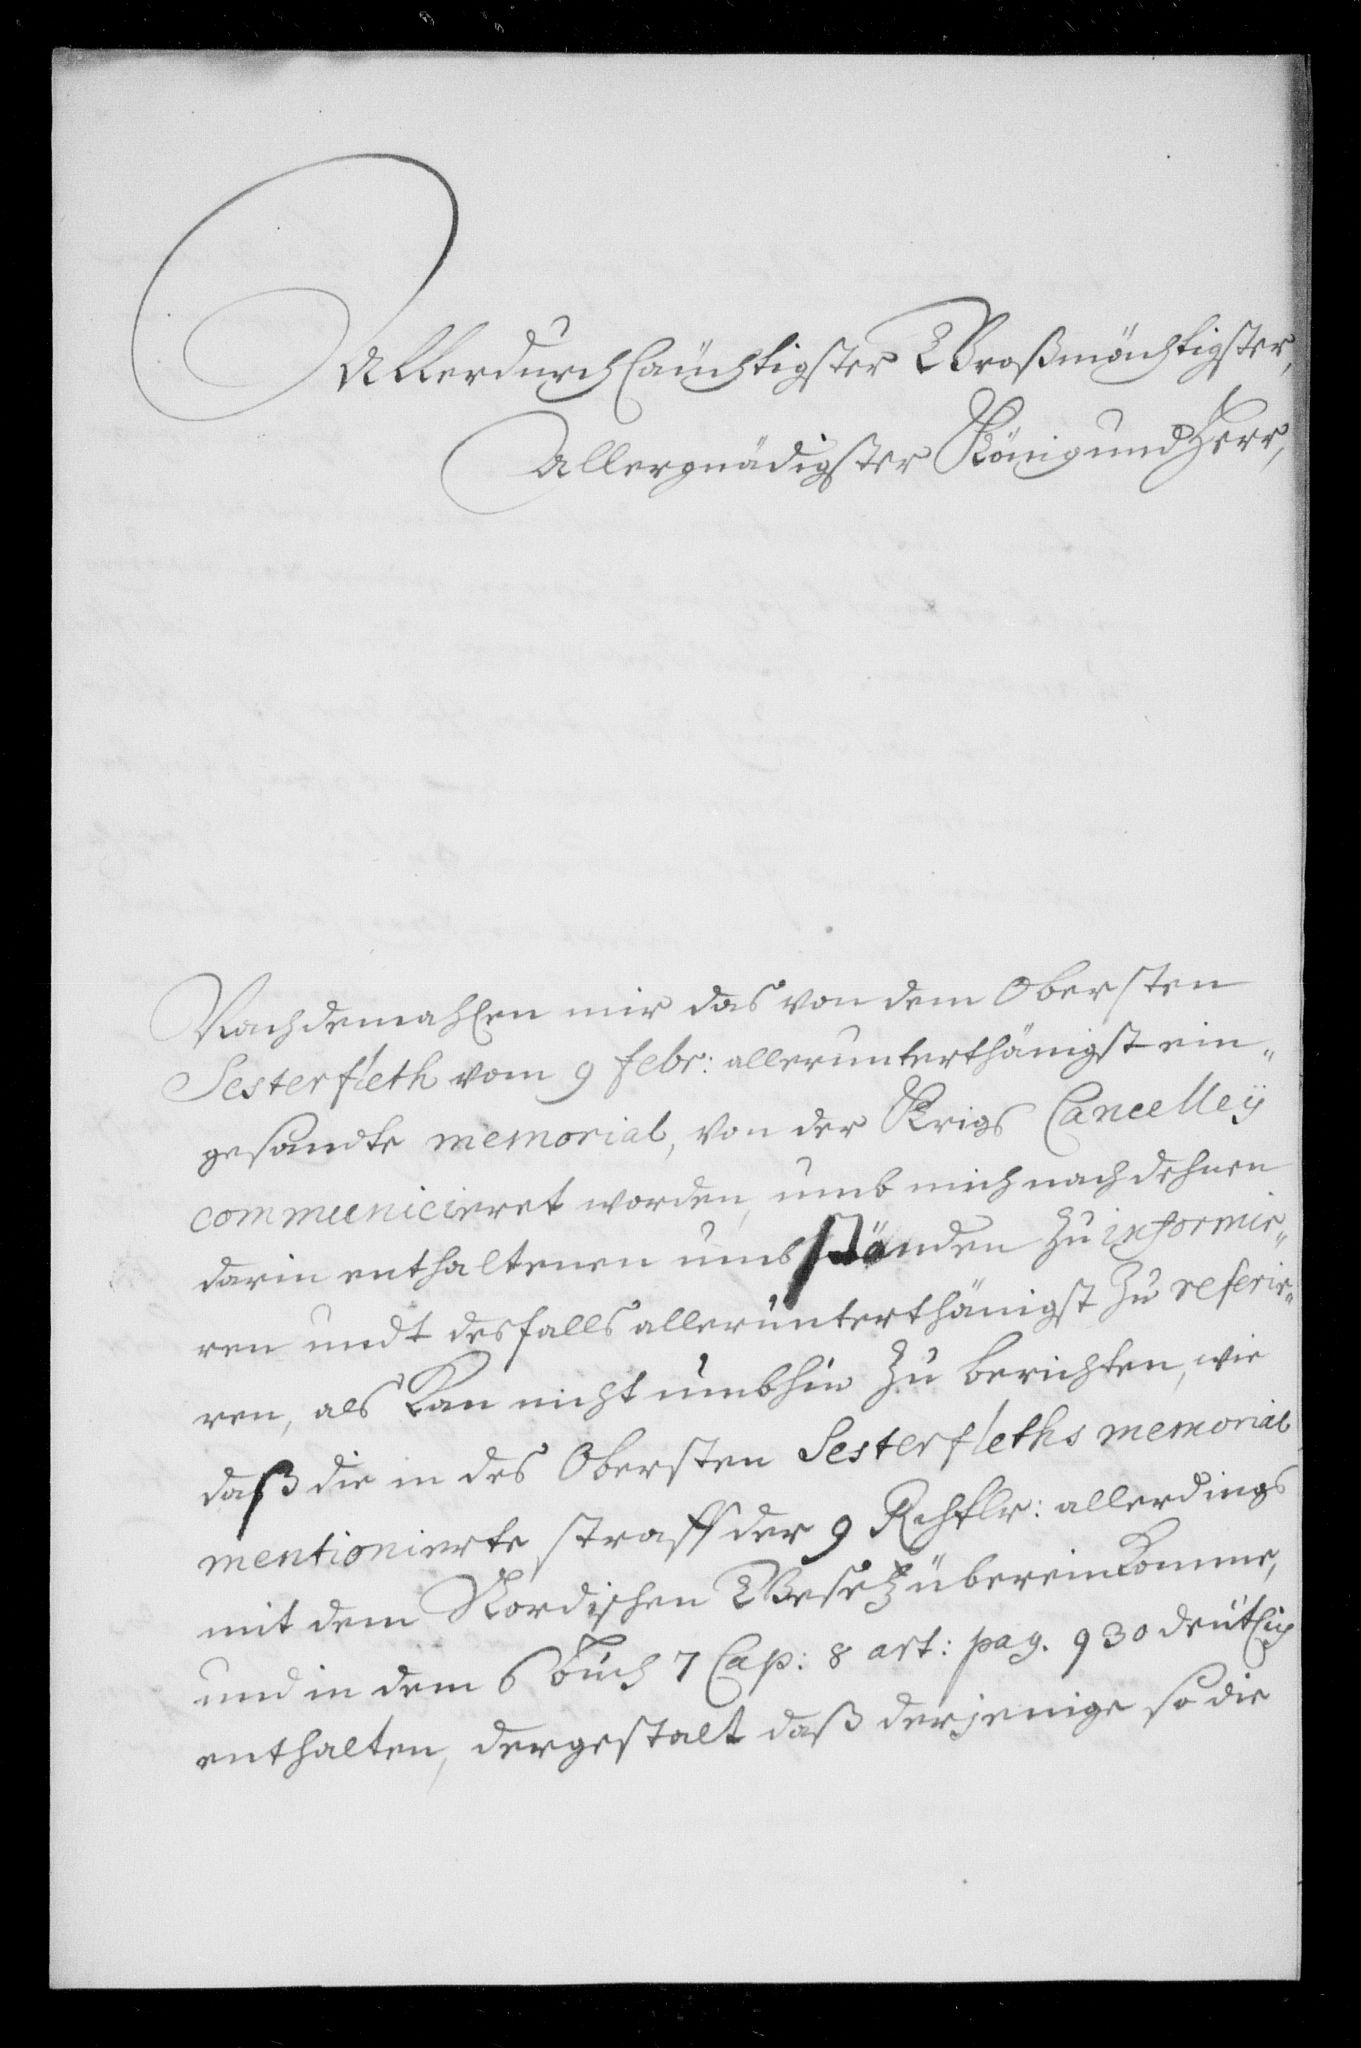 Allerdurchläuchtigster Großmächtigster,
Allergnädigster König und Herr,
Nachdemahlen mir das von dem Obersten
Sesterfleth vom 9 febr: allerunterthänigst ein„
gesandte memorial, von der Krigs Cancelleÿ
communicieret worden, umb mich nach dehnen
darin enthaltenen umbständen zu informie„
ren undt desfalls allerunterthänigst zu referie„
ren, als Kan nicht umbhin zu berichten, wie
daß die in des Obersten Sesterfleths memorial
mentionierte straff der 9 Rchtlr: allerdings
mit dem Nordischen Gesetz übereinkomme,
und in dem 6 buch 7 Cap: 8 art: pag. 930 deutlich
enthalten, dergestalt daß derjenige so die